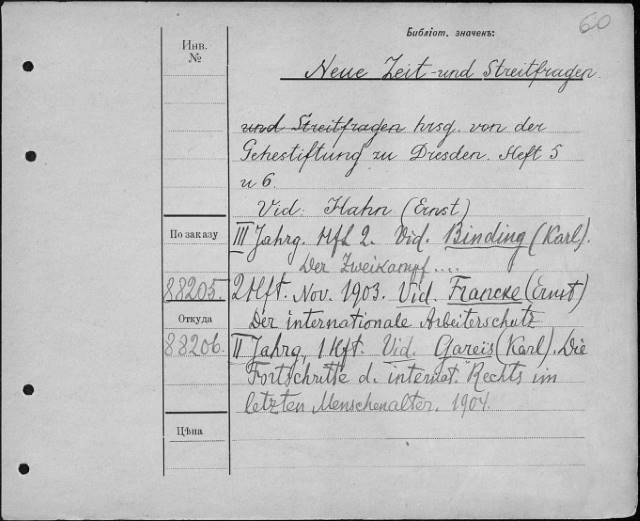 60
Библіот. значенъ:
Инв.
№
Neue Zeit- und Streitfragen.
und Streitfragen hrsg. von der
Gehestiftung zu Dresden. Heft 5
u 6.
Vid: Hahn (Ernst)
По заказу
III Jahrg. Hft 2. Vid. Binding (Karl).
Der Zweikampf....
88205. 2 Hft. Nov. 1903. Vid. Francke (Ernst)
Откуда
Der internationale Arbeiterschutz
88206. II Jahrg, 1 Hft. Vid. Gareis (Karl). Die
Fortschritte d. internat. Rechts im
letzten Menschenalter. 1904.
Цѣна